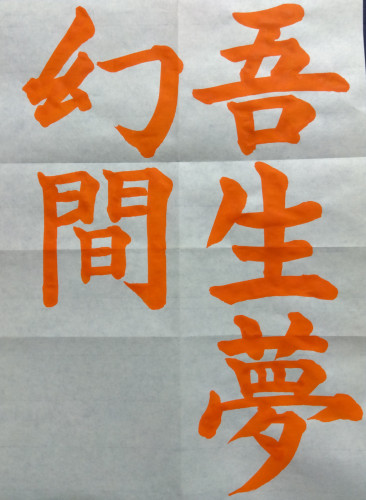 吾生夢
幻間